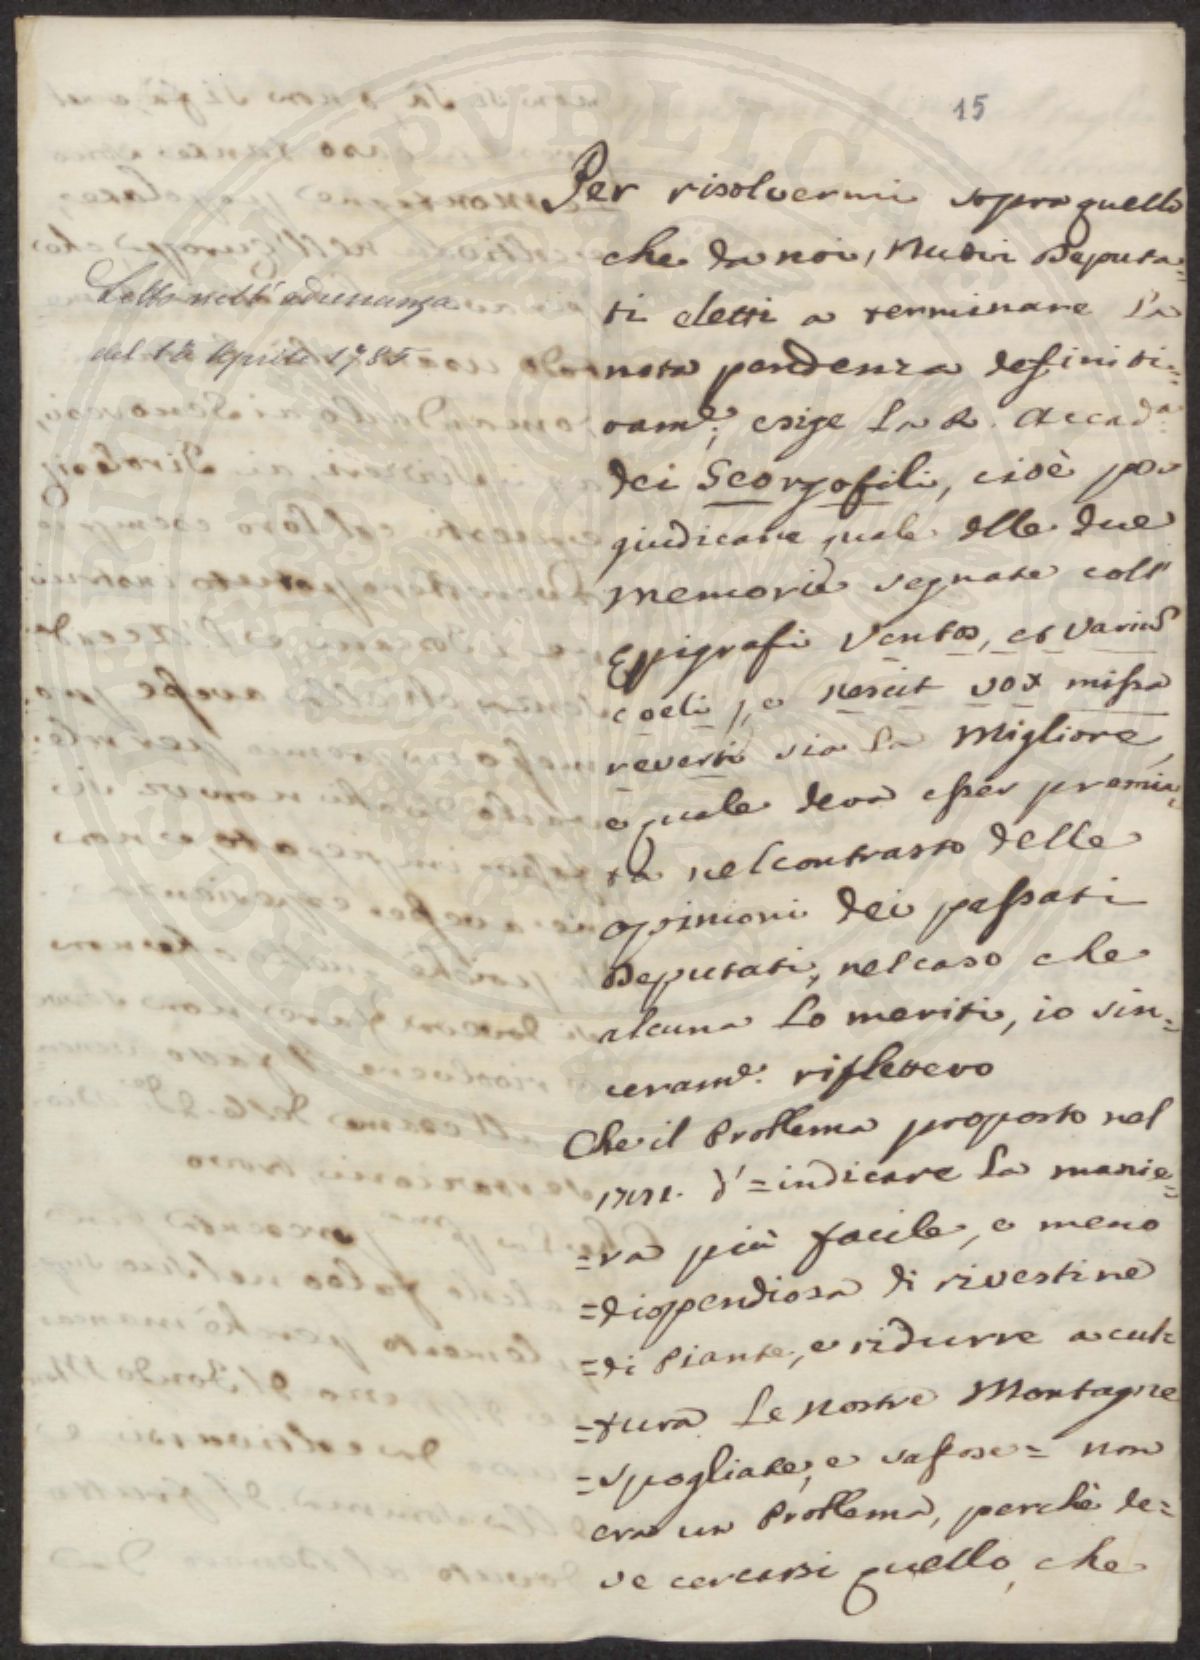 15
Per risolvermi sopra quello
che da noi, Nuovi Deputa=
ti eletti a terminare la
nota pendenza definiti=
vam.e, esige La R. Accad.a
dei Georgofili, cioè per
giudicare quale delle due
memorie segnate coll'
Epigrafi Ventos, et varium
coeli, e nescit vox missa
reverti sia la Migliore,
e quale deva esser premia=
ta nel contrasto delle
opinioni dei passati
Deputati, nel caso che
alcuna Lo meriti, io sin=
ceram.e riflettevo
Che il Problema proposto nel
d'=indicare La manie=
=ra più facile, e meno
=dispendiosa di rivestire
=di Piante, e ridurre a cul=
=tura Le nostre Montagne
=spogliate, e sassose= non
era un Problema, perchè de=
ve cercarsi quello, che
Letta nell'adunanza
del Aprile 1785